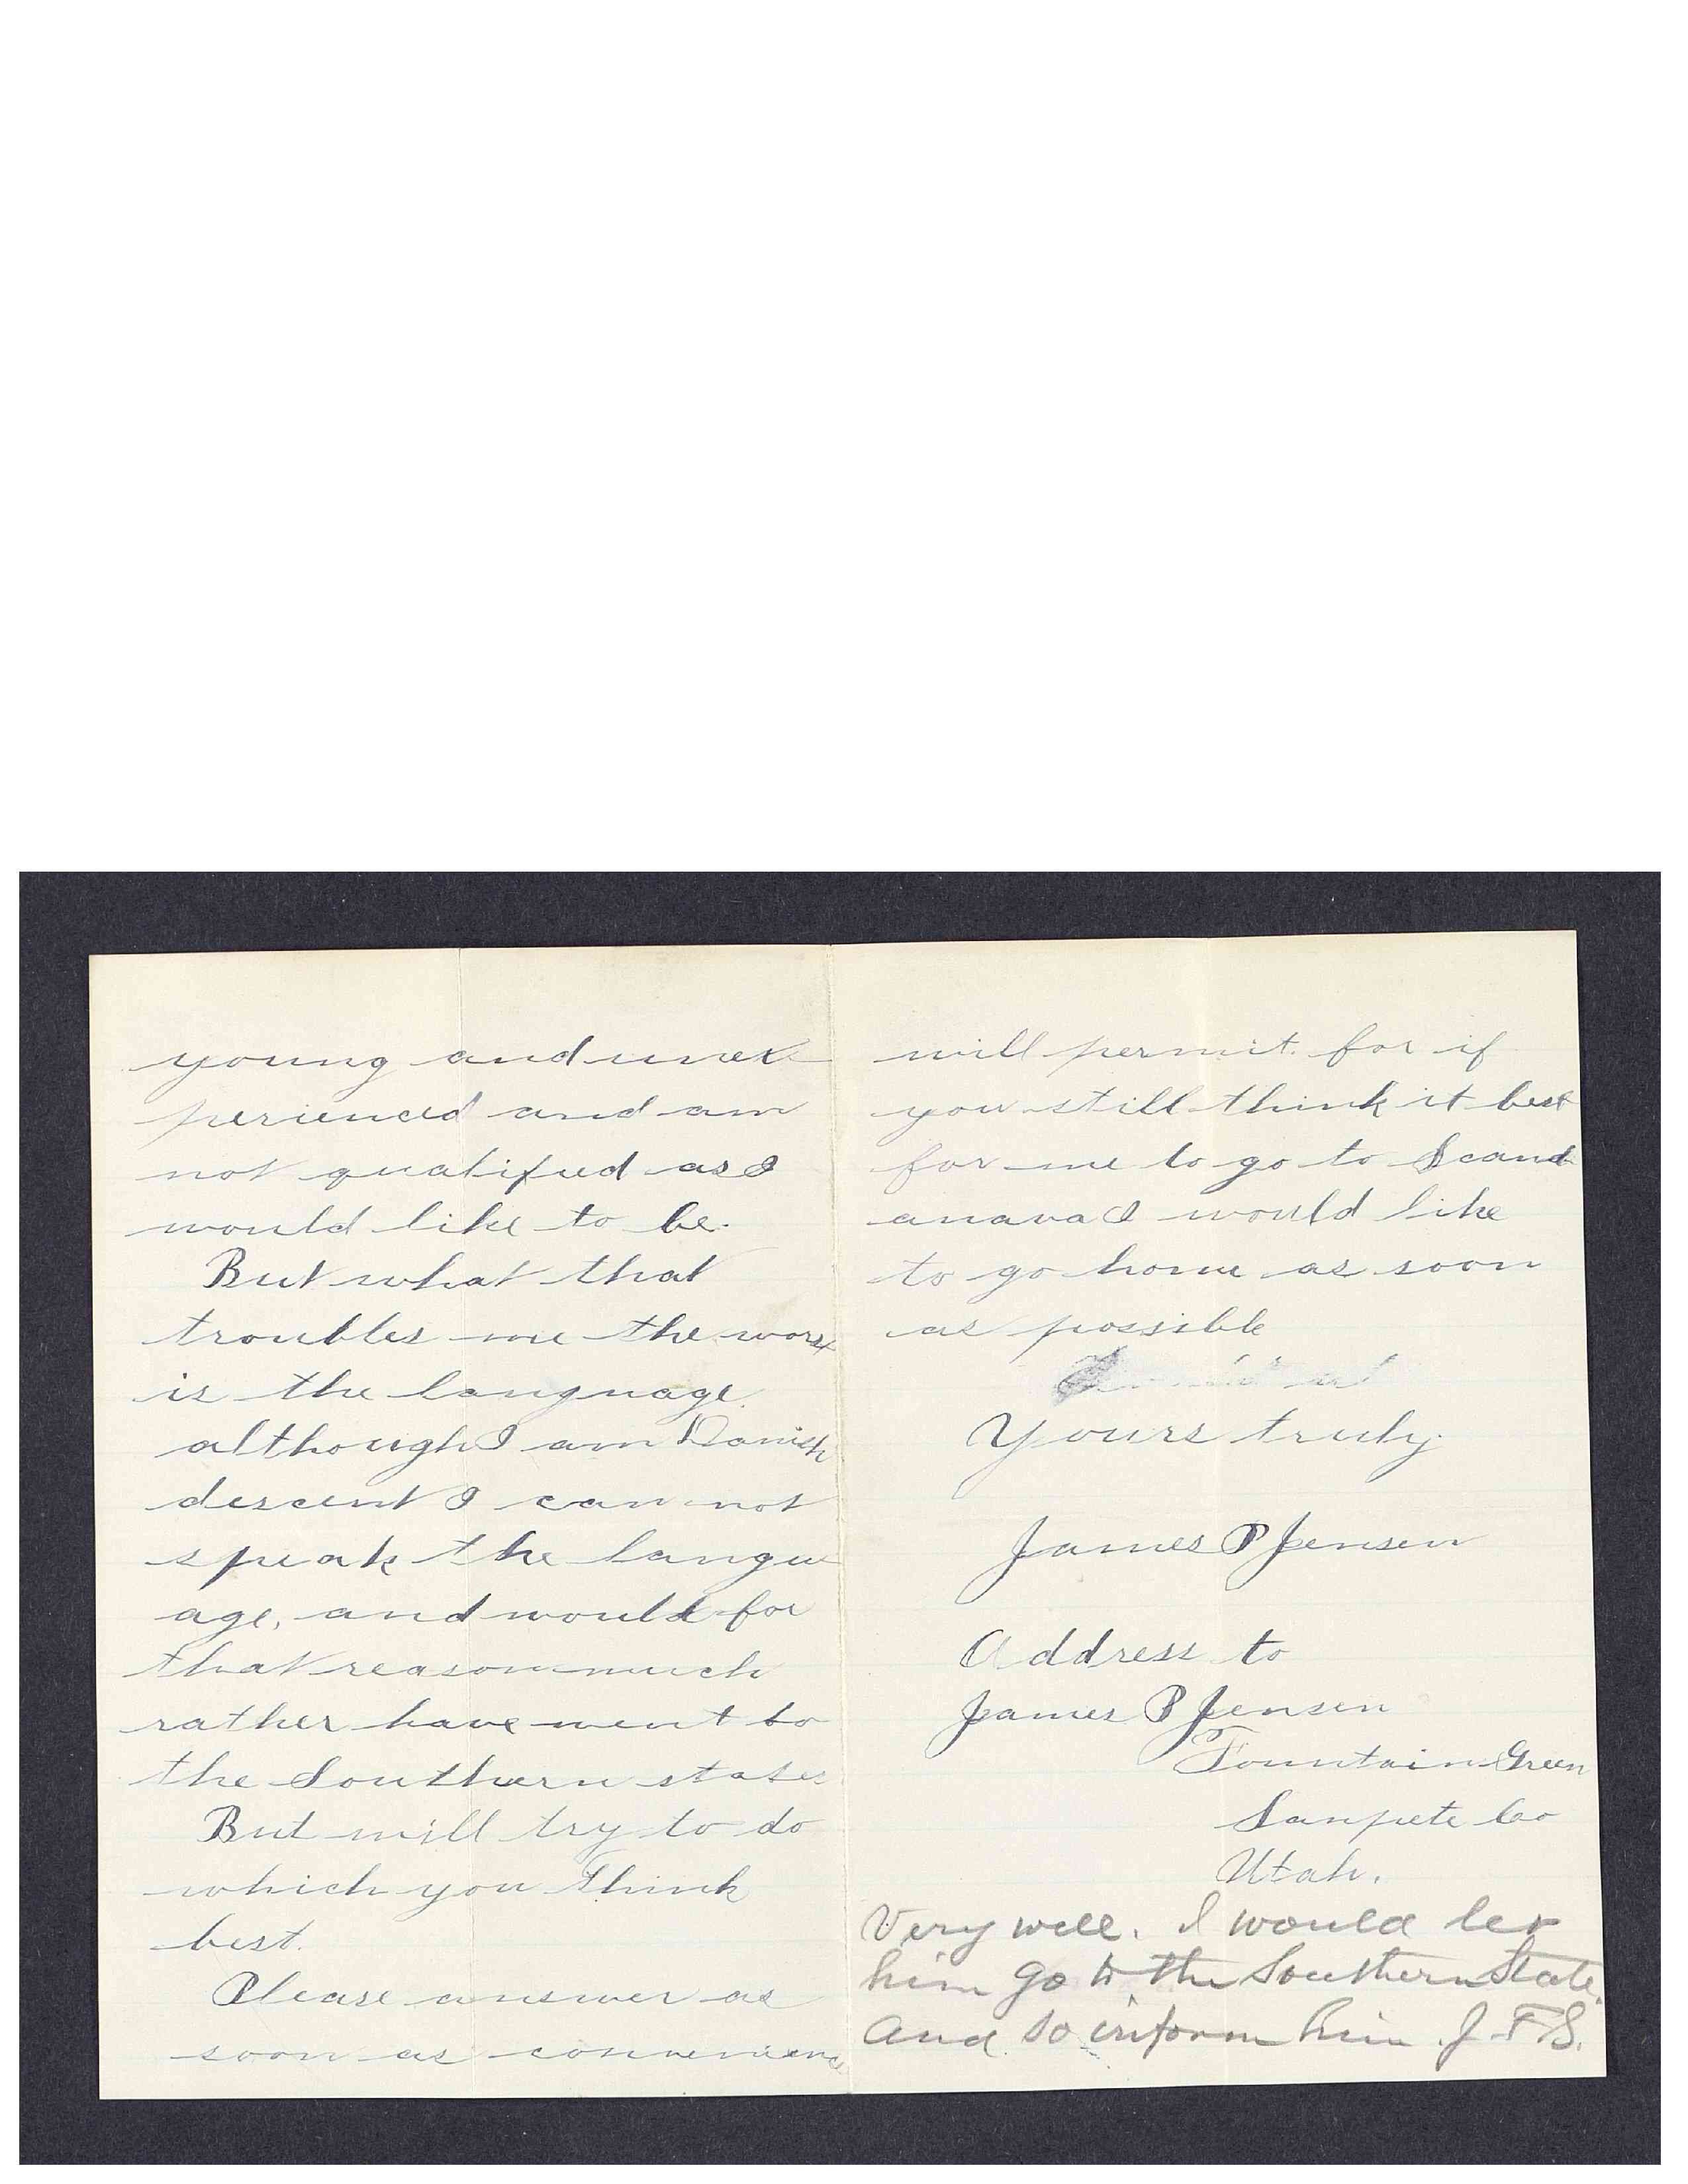 young and unex-
perienced and am
not qualified as I
would like to be.
But what that
troubles me the worst
is the language.
although I am Danish
descent I can not
speak the langu
age, and would for
that reason much
rather have went to
the Southern states
But will try to do
which you think
best.
Please answer as
soon as convenience
will permit. for if
you still think it best
for me to go to Scand-
anava I would like
to go home as soon
as possible
Yours truly
James P Jensen
Address to
James P Jensen
Fountain Green
Sanpete Co
Utah.
Very well. I would let
him go to the Southern States.
And so inform him. J.F.S.